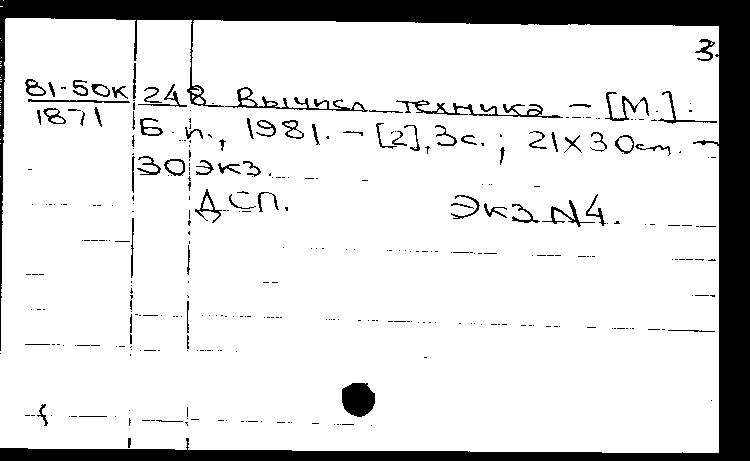 3.
81-50К 248. Вычисл. техника. – [М.].
1871 Б. п., 1981. – [2], 3 с. ; 21×30 см. –
30 экз.
ДСП. Экз N4.